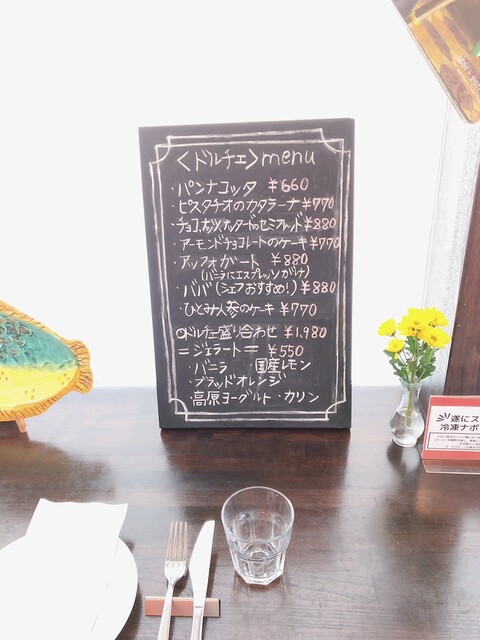 <ドルチェ> menu
・パンナコッタ ¥660
・ピスタチオのカタラーナ ¥770
・チョコ、ナッツ、カスタードのセミフレッド ¥880
・アーモンドチョコレートのケーキ ¥770
・アッフォガート ¥880
(バニラにエスプレッソがけ)
・ババ (シェフおすすめ!) ¥880
・ひとみ人参のケーキ ¥770
○ドルチェ盛り合わせ ¥1,980
=ジェラート= ¥550
・バニラ 国産レモン
・ブラッドオレンジ
・高原ヨーグルト ・カリン
遂にス
冷凍ナポ